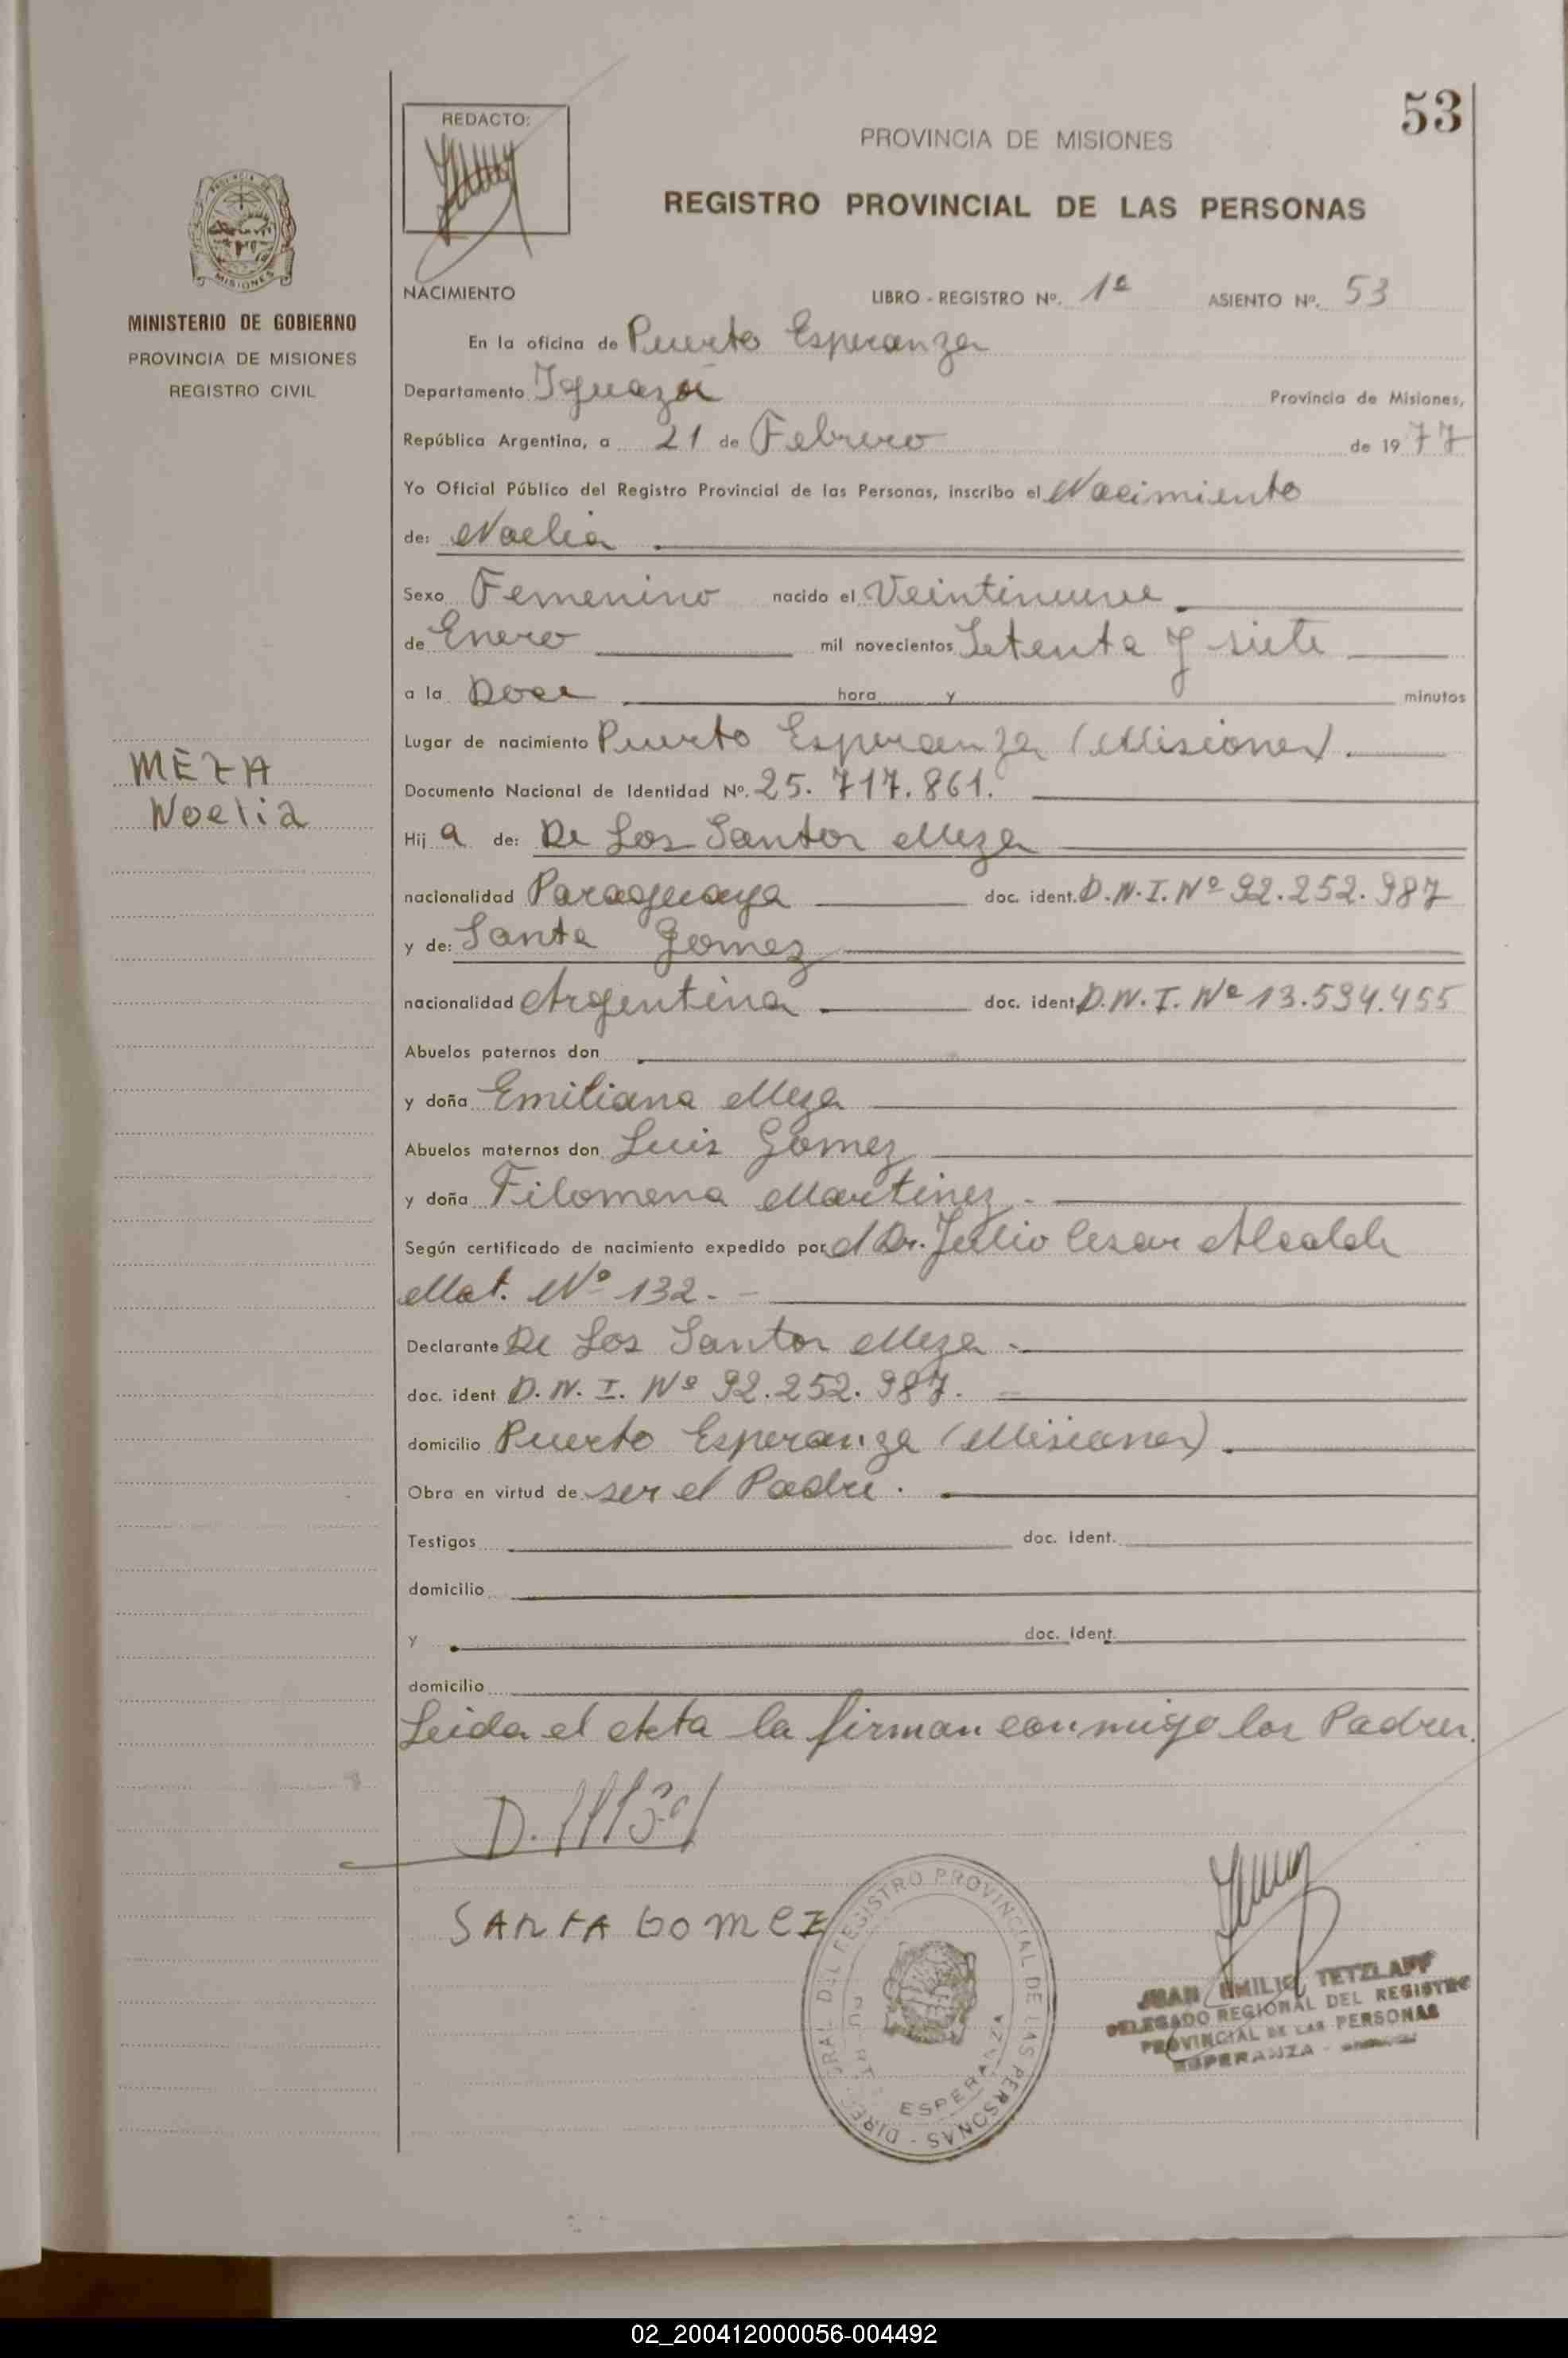 53
REDACTO:
PROVINCIA DE MISIONES
REGISTRO PROVINCIAL DE LAS PERSONAS
PROVINCIA DE
MISIONES
MINISTERIO DE GOBIERNO
PROVINCIA DE MISIONES
REGISTRO CIVIL
NACIMIENTO LIBRO - REGISTRO Nº. 1º ASIENTO Nº. 53
En la oficina de Puerto Esperanza
Departamento Iguazú Provincia de Misiones,
República Argentina, a 21 de Febrero de 1977
Yo Oficial Público del Registro Provincial de las Personas, inscribo el Nacimiento
de: Noelia
Sexo Femenino nacido el Veintinueve
de Enero mil novecientos Setenta y siete
a la Doce hora y minutos
Lugar de nacimiento Puerto Esperanza (Misiones).
MEZA
Noelia
Documento Nacional de Identidad Nº. 25.717.861.
Hija de: De Los Santos Meza
nacionalidad Paraguaya doc. ident. D.N.I. Nº 92.252.987
y de: Santa Gomez
nacionalidad Argentina doc. ident. D.N.I. Nº 13.594.455
Abuelos paternos don
y doña Emiliana Meza
Abuelos maternos don Luis Gomez
y doña Filomena Martinez.-
Según certificado de nacimiento expedido por el Dr. Julio Cesar Alcalde
Mat. Nº 132.-
Declarante De Los Santos Meza.-
doc. ident. D.N.I. Nº 92.252.987.
domicilio Puerto Esperanza (Misiones).
Obra en virtud de ser el Padre.
Testigos doc. ident.
domicilio
y doc. ident.
domicilio
Leida el Acta la firman conmigo los Padres.
SANTA GOMEZ
DEL REGISTRO PROVINCIAL DE LAS PERSONAS
ESPERANZA
JUAN EMILIO TETZLAFF
DELEGADO REGIONAL DEL REGISTRO
PROVINCIAL DE LAS PERSONAS
ESPERANZA -
02_200412000056-004492